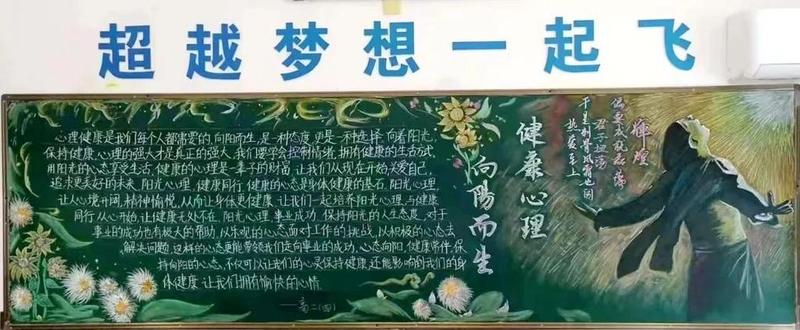 超越梦想一起飞
心理健康是我们每个人都需要的,向阳而生,是一种态度,更是一种选择,向着阳光,
保持健康心理的强大才是真正的强大,我们要学会控制情绪,拥有健康的生活方式,
用阳光的心态享受生活,健康的心理是一辈子的财富,让我们从现在开始关爱自己,
追求更美好的未来,阳光心理,健康同行,健康的心态是身体健康的基石,阳光心理,
让心境开阔,精神愉悦,从而让身体更健康,让我们一起培养阳光心理,与健康
同行,从心开始,让健康无处不在,阳光心理,事业成功,保持阳光的人生态度,对于
事业的成功也有极大的帮助,以乐观的心态面对工作的挑战,以积极的心态去
解决问题,这样的心态更能带领我们走向事业的成功,心态向阳,健康常伴,保
持向阳的心态,不仅可以让我们的心灵保持健康,还能影响到我们的身
体健康,让我们拥有愉快的心情
——高二(四)
向陽而生
健康心理
辉煌
君子坦荡
热爱至上